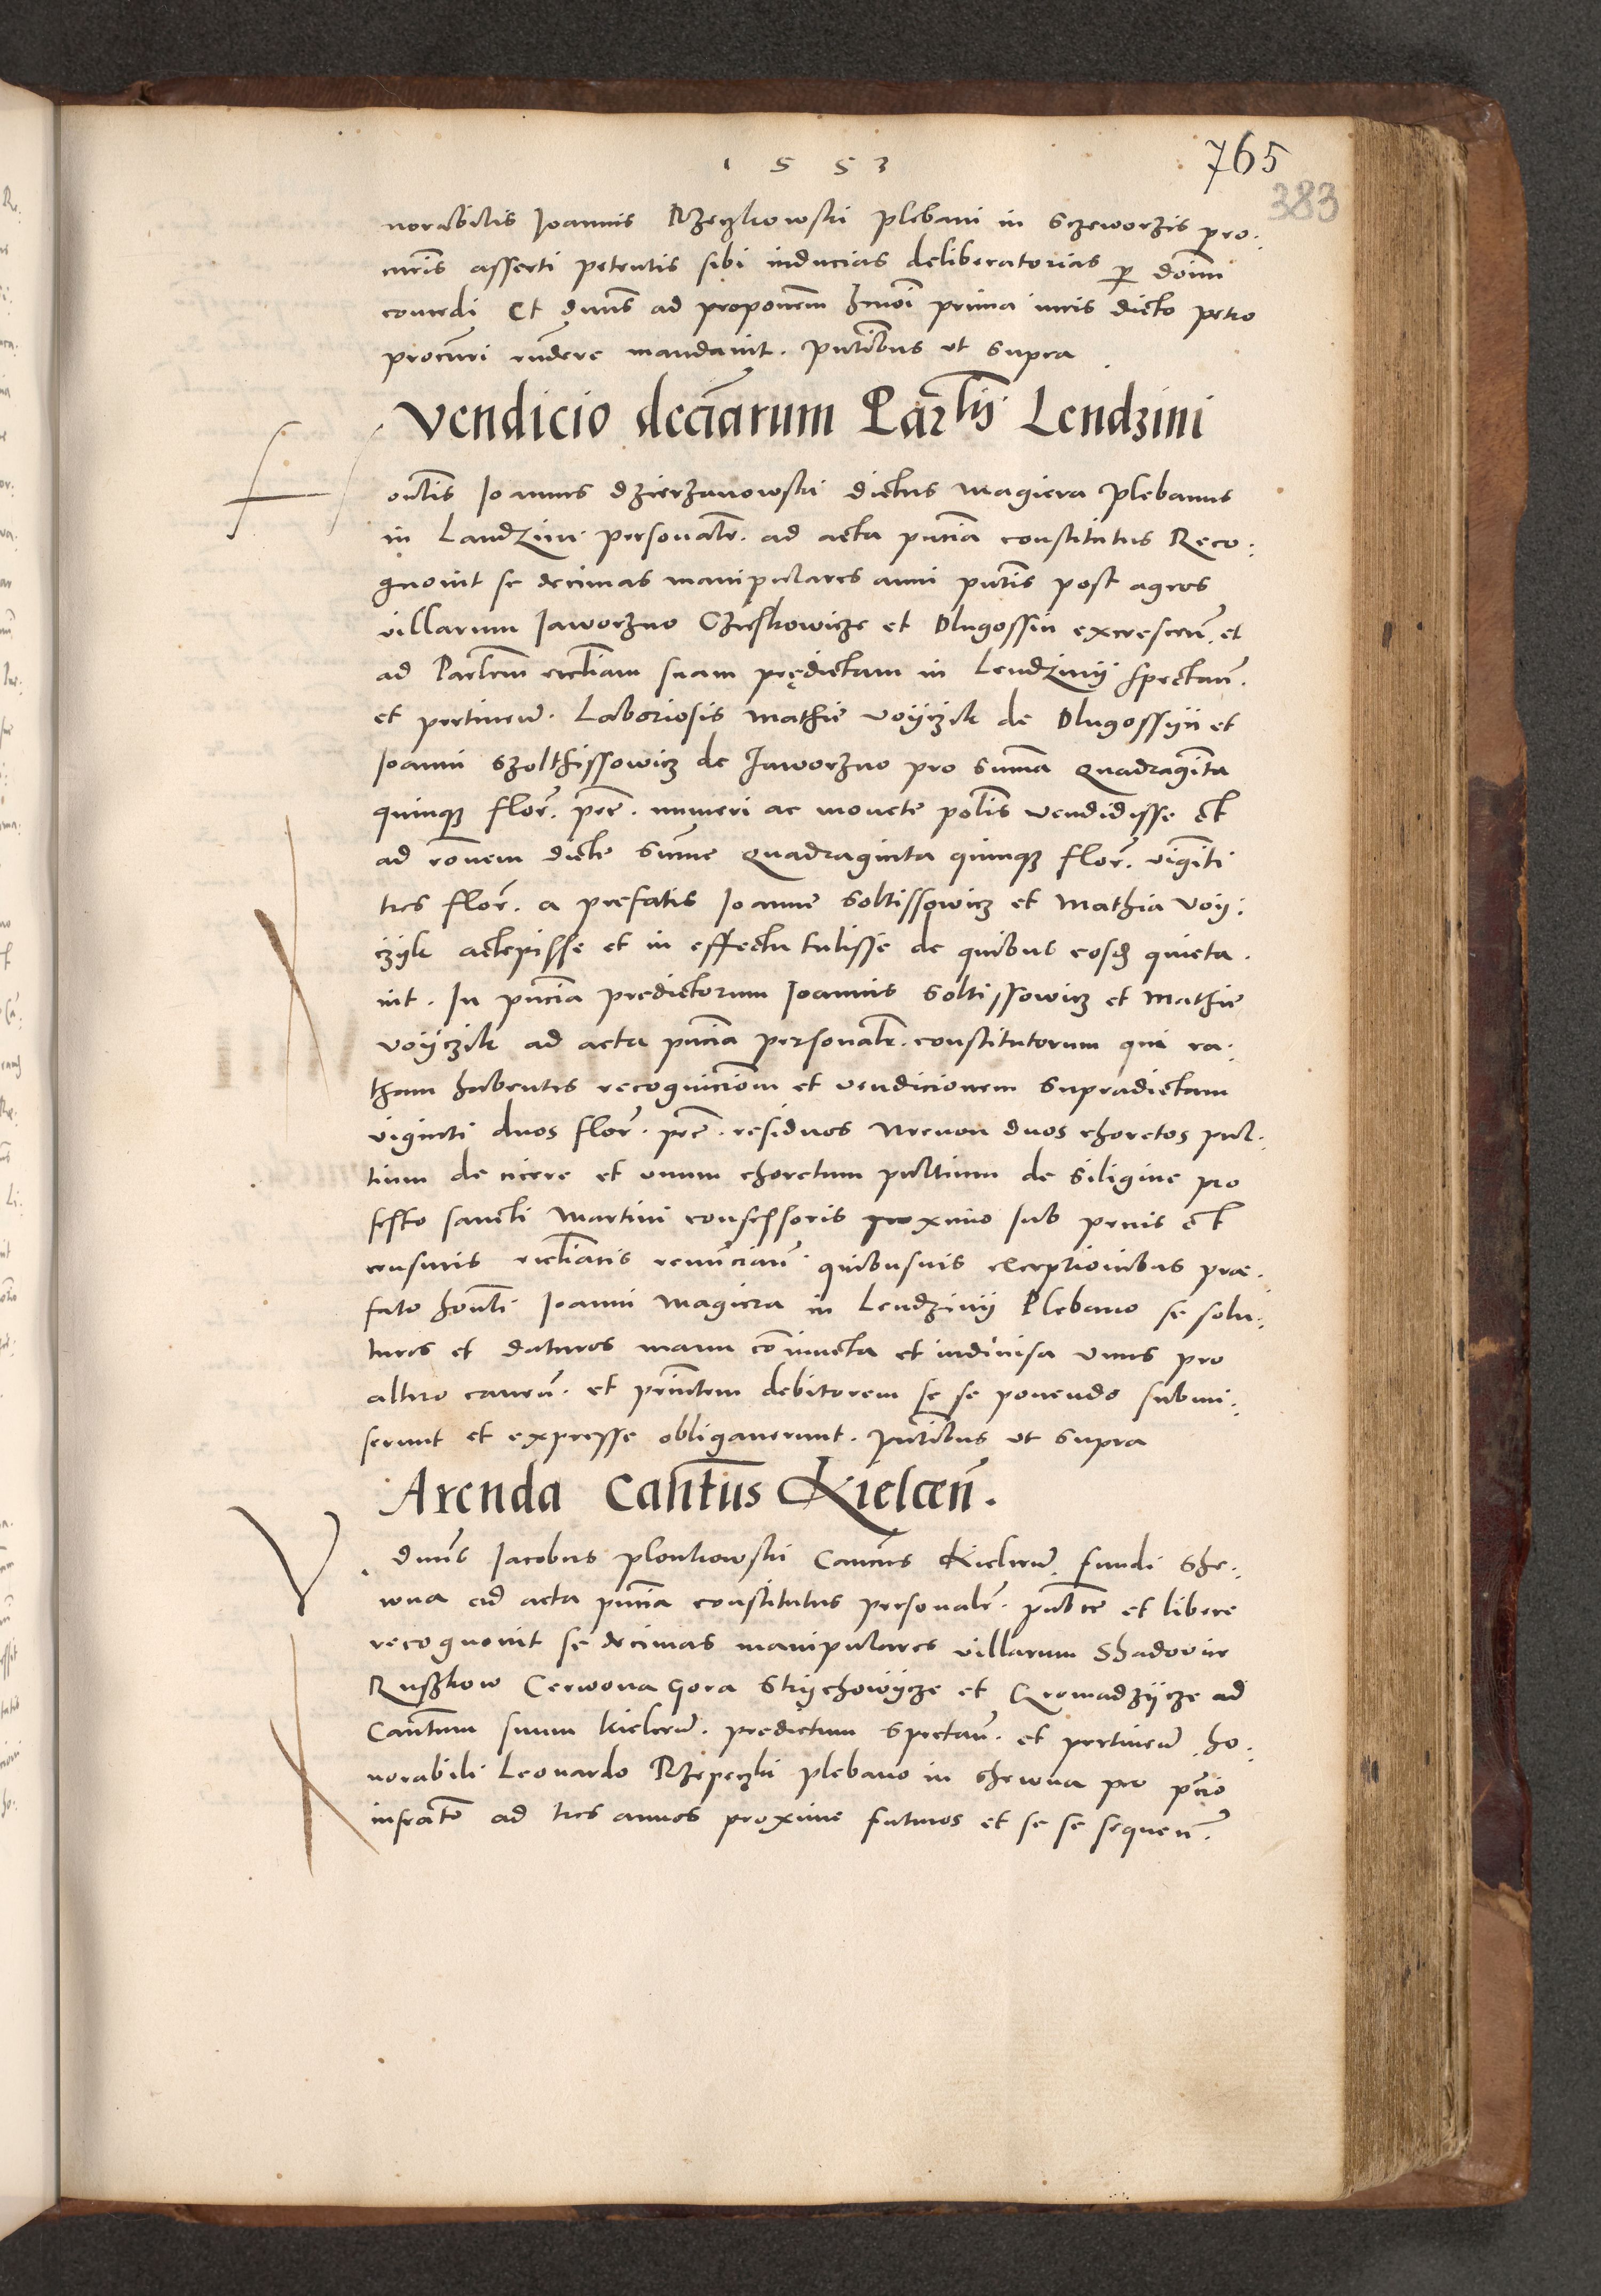 1553
765
383
norabilis Joannis Rzeczkowski plebani in Sczeworzis pro.
curis asserti petentis sibi inducias deliberatorias per domi
concedi Et dnus ad proponem prima iuris dicto petro
procuri rndere mandavit. pntibus ut supra
Vendicio deciarum Parlij Lendzini
Joannes Dzierzanowski dictus Magiera Plebanus
in Landzini personalr. ad acta pntia constitutus Reco.
gnovit se decimas manipulares anni pntis post agros
villarum Jaworzno Czieskowicze et Dlugossin excrescen. et
ad Parlem eccliam suam prędictam in Lendzinij spectan.
et pertinen. Laboriosis Mathie Voijczik de Dlugossijn et
Joanni Szolthissowicz de Jaworzno pro summa quadraginta
quinque flor. pec. numeri ac monete polis vendidisse et
ad ronem dicte summe quadraginta quinque flor. viginti
tres flor. a prefatis Joanne Soltissowicz et Mathia Voij.
czijk accepisse et in effectu tulisse de quibus eosd quieta.
vit. In pntia predictorum Joannis Soltissowicz et Mathie
Voijczik ad acta pntia personalr. constitutorum qui ra.
tham habentes recognicionem et vendicionem supradictam
viginti duos flor. pec. residuos Necnon duos choretos pul.
tium de cicere et unum choretum pultium de siligine pro
festo sancti Martini confessoris proximo sub penis et
censuris ecclicis renuncian. quibusvis exceptionibus prae.
fato honli Joanni Magiera in Lendzinij Plebano se solu.
turos et daturos manu coniuncta et indivisa unus pro
altero caven. et prinlem debitorem se se ponendo submi.
serunt et expresse obligaverunt. pntibus ut supra
Arenda Cantus Kielcen.
Dnus Jacobus Plonkowski Canus Kielcen. fundi Szhe.
wna ad acta pntia constitutus personalr. pubce et libere
recognovit se decimas manipulares villarum
Ruszkow Cerwona Gora Strijchowijcze et Gromadzijcze ad
Cantum suum Kielcen. predictum spectan. et pertinen. ho.
norabili Leonardo Rzepeczki plebano in Shewna pro pcio
infrascto ad tres annos proxime futuros et se se sequen.